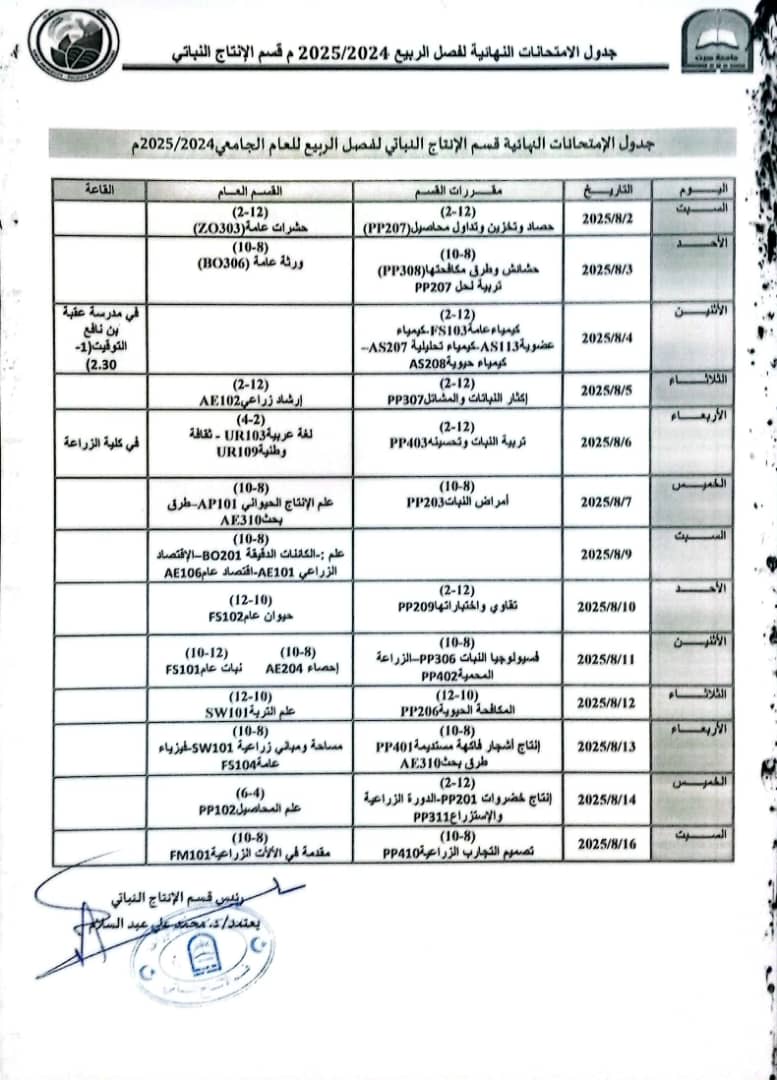 جدول الامتحانات النهائية لفصل الربيع 2025/2024 م قسم الإنتاج النباتي
جامعة سرت
جدول الإمتحانات النهائية قسم الإنتاج النباتي لفصل الربيع للعام الجامعي2025/2024م
اليـــوم التاريـــخ مقـــررات القسم القسم العـام القاعة
السبـــت 2025/8/2 (2-12) (2-12)
حصاد وتخزين وتداول محاصيل(PP207) حشرات عامة(ZO303)
الأحـــد 2025/8/3 (10-8) (10-8)
حشائش وطرق مكافحتها(PP308) ورثة عامة (BO306)
تربية نحل PP207
الأثنيـــن 2025/8/4 (2-12) في مدرسة عقبة
كيمياء عامةFS103-كيمياء بن نافع
عضويةAS113-كيمياء تحليلية AS207– التوقيت(1-
كيمياء حيويةAS208 2.30)
الثلاثـــاء 2025/8/5 (2-12) (2-12)
إكثار النباتات والمشاتلPP307 إرشاد زراعيAE102
الأربعـــاء 2025/8/6 (2-12) (4-2) في كلية الزراعة
تربية النبات وتحسينهPP403 لغة عربيةUR103 - ثقافة
وطنيةUR109
الخميـــس 2025/8/7 (10-8) (10-8)
أمراض النباتPP203 علم الإنتاج الحيواني AP101–طرق
بحثAE310
السبـــت 2025/8/9 (10-8)
علم :-الكائنات الدقيقة BO201–الإقتصاد
الزراعي AE101-اقتصاد عامAE106
الأحـــد 2025/8/10 (2-12) (12-10)
تقاوي واختباراتهاPP209 حيوان عامFS102
الأثنيـــن 2025/8/11 (10-8) (10-8) (10-12)
فسيولوجيا النبات PP306–الزراعة إحصاء AE204 نبات عامFS101
المحميةPP402
الثلاثـــاء 2025/8/12 (12-10) (12-10)
المكافحة الحيويةPP206 علم التربةSW101
الأربعـــاء 2025/8/13 (10-8) (10-8)
إنتاج أشجار فاكهة مستديمةPP401 مساحة ومباني زراعية SW101-فيزياء
طرق بحثAE310 عامةFS104
الخميـــس 2025/8/14 (2-12) (6-4)
إنتاج خضروات PP201-الدورة الزراعية علم المحاصيلPP102
والإستزراعPP311
السبـــت 2025/8/16 (10-8) (10-8)
تصميم التجارب الزراعيةPP410 مقدمة في الألات الزراعيةFM101
رئيس قسم الإنتاج النباتي
يعتمد/د.محمد علي عبد السلام